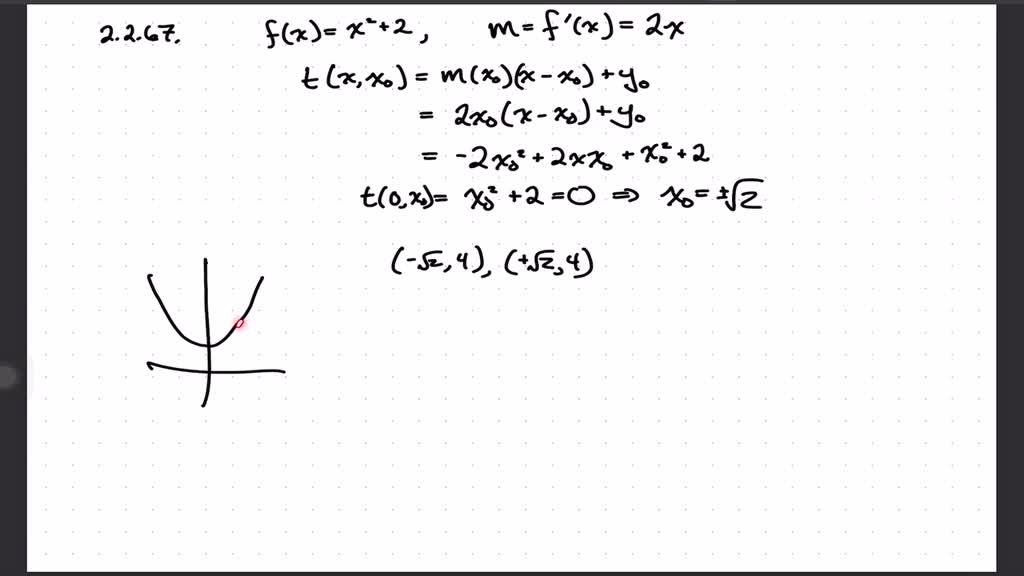 2.2.67. f(x) = x² + 2, m = f'(x) = 2x
t(x, x₀) = m(x₀)(x - x₀) + y₀
= 2x₀(x - x₀) + y₀
= -2x₀² + 2xx₀ + x₀² + 2
t(0, x₀) = x₀² + 2 = 0 ⇒ x₀ = ±√2
(-√2, 4), (+√2, 4)